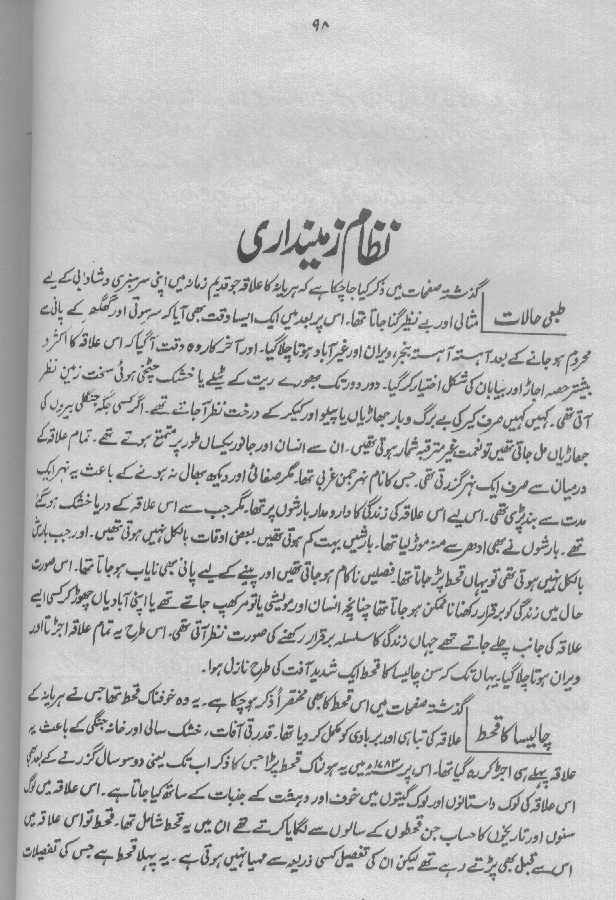 ۹۸
نظام زمینداری
گذشتہ صفحات میں ذکر کیا جا چکا ہے کہ ہریانہ کا علاقہ جو قدیم زمانہ میں اپنی سرسبزی و شادابی کے لیے
طبعی حالات
مثالی اور بے نظیر گنا جاتا تھا۔ اس پر بعد میں ایک ایسا وقت بھی آیا کہ سرہوتی اور گھگھر کے پانی سے
محروم ہو جانے کے بعد آہستہ آہستہ بنجر، ویران اور غیر آباد ہوتا چلا گیا۔ اور آخر کار وہ وقت آ گیا کہ اس علاقہ کا اکثر و
بیشتر حصہ اجاڑ اور بیابان کی شکل اختیار کر گیا۔ دور دور تک بھورے ریت کے ٹیلے یا خشک چٹختی ہوئی سخت زمین نظر
آتی تھی۔ کہیں کہیں صرف کیر کی بے برگ و بار جھاڑیاں یا پیلو اور کیکر کے درخت نظر آ جاتے تھے۔ اگر کسی جگہ جنگلی بیروں کی
جھاڑیاں مل جاتی تھیں تو نعمت غیر مترقبہ شمار ہوتی تھیں۔ ان سے انسان اور جانور یکساں طور پر متمتع ہوتے تھے۔ تمام علاقہ کے
درمیان سے صرف ایک نہر گزرتی تھی۔ جس کا نام نہر جمن غربی تھا۔ مگر صفائی اور دیکھ بھال نہ ہونے کے باعث یہ نہر ایک
مدت سے بند پڑی تھی۔ اس لیے اس علاقہ کی زندگی کا دارومدار بارشوں پر تھا۔ مگر جب سے اس علاقہ کے دریا خشک ہو گئے
تھے۔ بارشوں نے بھی ادھر سے منہ موڑ لیا تھا۔ بارشیں بہت کم ہوتی تھیں۔ بعض اوقات بالکل نہیں ہوتی تھیں۔ اور جب بارش
بالکل نہیں ہوتی تھی تو یہاں قحط پڑ جاتا تھا فصلیں ناکام ہو جاتی تھیں اور پینے کے لیے پانی بھی نایاب ہو جاتا تھا۔ اس صورت
حال میں زندگی کو برقرار رکھنا ناممکن ہو جاتا تھا چنانچہ انسان اور مویشی یا تو مر کھپ جاتے تھے یا اپنی آبادیاں چھوڑ کر کسی ایسے
علاقہ کی جانب چلے جاتے تھے جہاں زندگی کا سلسلہ برقرار رکھنے کی صورت نظر آتی تھی۔ اس طرح یہ تمام علاقہ اجڑتا اور
ویران ہوتا چلا گیا۔ یہاں تک کہ سن چالیسا کا قحط ایک شدید آفت کی طرح نازل ہوا۔
گذشتہ صفحات میں اس قحط کا بھی مختصراً ذکر ہو چکا ہے۔ یہ وہ خوفناک قحط تھا جس نے ہریانہ کے
چالیسا کا قحط
علاقہ کی تباہی اور بربادی کو مکمل کر دیا تھا۔ قدرتی آفات، خشک سالی اور خانہ جنگی کے باعث یہ
علاقہ پہلے ہی اجڑ کر رہ گیا تھا۔ اس پر ۱۷۸۳ء میں یہ ہولناک قحط پڑا جس کا ذکر اب تک یعنی دو سو سال گزرنے کے بعد بھی
اس علاقہ کی لوک داستانوں اور لوک گیتوں میں خوف اور دہشت کے جذبات کے ساتھ کیا جاتا ہے۔ اس علاقہ میں لوگ
سنوں اور تاریخوں کا حساب جن قحطوں کے سالوں سے لگایا کرتے تھے ان میں یہ قحط شامل تھا۔ قحط تو اس علاقہ میں
اس سے قبل بھی پڑتے رہے تھے لیکن ان کی تفصیل کسی ذریعہ سے مہیا نہیں ہوتی ہے۔ یہ پہلا قحط ہے جس کی تفصیلات